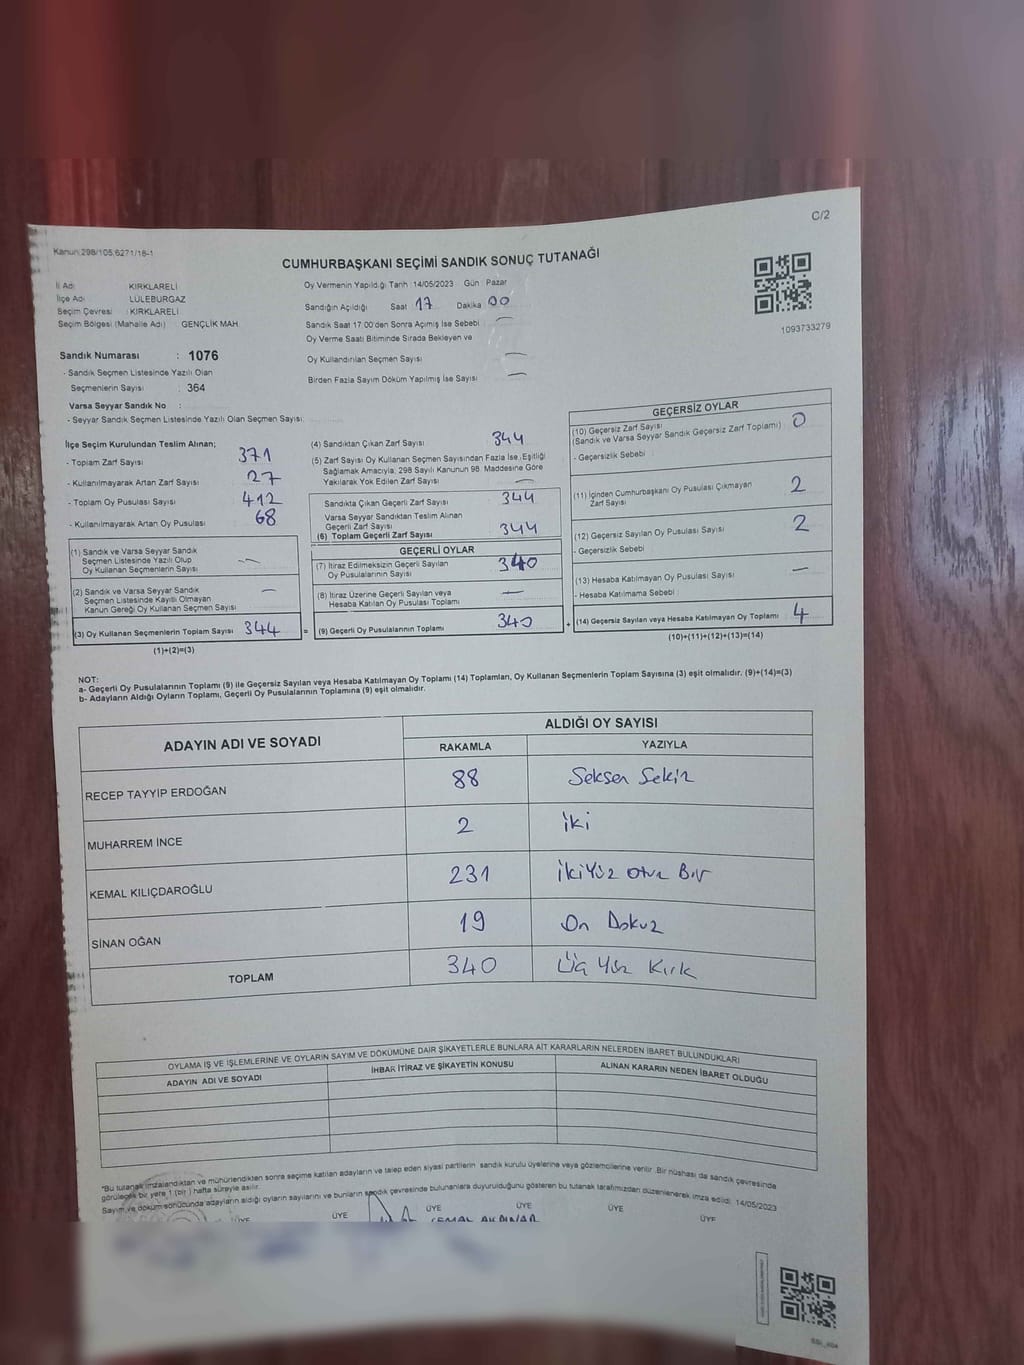 C/2
Kanun:298/105,6271/18-1
CUMHURBAŞKANI SEÇİMİ SANDIK SONUÇ TUTANAĞI
İl Adı : KIRKLARELİ
İlçe Adı : LÜLEBURGAZ
Seçim Çevresi : KIRKLARELİ
Seçim Bölgesi (Mahalle Adı) : GENÇLİK MAH.
Oy Vermenin Yapıldığı Tarih :14/05/2023 Gün : Pazar
Sandığın Açıldığı Saat 17 Dakika 00
Sandık Saat 17.00'den Sonra Açılmış İse Sebebi : —
Oy Verme Saati Bitiminde Sırada Bekleyen ve
Oy Kullandırılan Seçmen Sayısı —
Birden Fazla Sayım Döküm Yapılmış İse Sayısı —
1093733279
Sandık Numarası : 1076
- Sandık Seçmen Listesinde Yazılı Olan
Seçmenlerin Sayısı : 364
Varsa Seyyar Sandık No :
- Seyyar Sandık Seçmen Listesinde Yazılı Olan Seçmen Sayısı:
İlçe Seçim Kurulundan Teslim Alınan;
- Toplam Zarf Sayısı 371
- Kullanılmayarak Artan Zarf Sayısı 27
- Toplam Oy Pusulası Sayısı 412
- Kullanılmayarak Artan Oy Pusulası 68
(1) Sandık ve Varsa Seyyar Sandık
Seçmen Listesinde Yazılı Olup
Oy Kullanan Seçmenlerin Sayısı —
(2) Sandık ve Varsa Seyyar Sandık
Seçmen Listesinde Kayıtlı Olmayan
Kanun Gereği Oy Kullanan Seçmen Sayısı —
(3) Oy Kullanan Seçmenlerin Toplam Sayısı 344
(1)+(2)=(3)
(4) Sandıktan Çıkan Zarf Sayısı 344
(5) Zarf Sayısı Oy Kullanan Seçmen Sayısından Fazla İse ,Eşitliği
Sağlamak Amacıyla, 298 Sayılı Kanunun 98. Maddesine Göre
Yakılarak Yok Edilen Zarf Sayısı —
Sandıkta Çıkan Geçerli Zarf Sayısı 344
Varsa Seyyar Sandıktan Teslim Alınan
Geçerli Zarf Sayısı
(6) Toplam Geçerli Zarf Sayısı 344
GEÇERLİ OYLAR
(7) İtiraz Edilmeksizin Geçerli Sayılan
Oy Pusulalarının Sayısı 340
(8) İtiraz Üzerine Geçerli Sayılan veya
Hesaba Katılan Oy Pusulası Toplamı —
= (9) Geçerli Oy Pusulalarının Toplamı 340 +
GEÇERSİZ OYLAR
(10) Geçersiz Zarf Sayısı 0
(Sandık ve Varsa Seyyar Sandık Geçersiz Zarf Toplamı)
- Geçersizlik Sebebi :
(11) İçinden Cumhurbaşkanı Oy Pusulası Çıkmayan
Zarf Sayısı 2
(12) Geçersiz Sayılan Oy Pusulası Sayısı 2
- Geçersizlik Sebebi :
(13) Hesaba Katılmayan Oy Pusulası Sayısı —
- Hesaba Katılmama Sebebi :
(14) Geçersiz Sayılan veya Hesaba Katılmayan Oy Toplamı 4
(10)+(11)+(12)+(13)=(14)
NOT:
a- Geçerli Oy Pusulalarının Toplamı (9) ile Geçersiz Sayılan veya Hesaba Katılmayan Oy Toplamı (14) Toplamları, Oy Kullanan Seçmenlerin Toplam Sayısına (3) eşit olmalıdır. (9)+(14)=(3)
b- Adayların Aldığı Oyların Toplamı, Geçerli Oy Pusulalarının Toplamına (9) eşit olmalıdır.
ADAYIN ADI VE SOYADI ALDIĞI OY SAYISI
RAKAMLA YAZIYLA
RECEP TAYYİP ERDOĞAN 88 Seksen Sekiz
MUHARREM İNCE 2 iki
KEMAL KILIÇDAROĞLU 231 ikiYüz otuz Bir
SİNAN OĞAN 19 On Dokuz
TOPLAM 340 Üç Yüz Kırk
OYLAMA İŞ VE İŞLEMLERİNE VE OYLARIN SAYIM VE DÖKÜMÜNE DAİR ŞİKAYETLERLE BUNLARA AİT KARARLARIN NELERDEN İBARET BULUNDUKLARI
ADAYIN ADI VE SOYADI İHBAR İTİRAZ VE ŞİKAYETİN KONUSU ALINAN KARARIN NEDEN İBARET OLDUĞU
"Bu tutanak imzalandıktan ve mühürlendikten sonra seçime katılan adayların ve talep eden siyasi partilerin sandık kurulu üyelerine veya gözlemcilerine verilir .Bir nüshası da sandık çevresinde
görülecek bir yere 1 (bir ) hafta süreyle asılır.
Sayım ve döküm sonucunda adayların aldığı oyların sayılarını ve bunların sandık çevresinde bulunanlara duyurulduğunu gösteren bu tutanak tarafımızdan düzenlenerek imza edildi. 14/05/2023
ÜYE ÜYE ÜYE ÜYE ÜYE ÜYE
KEMAL AKPINAR